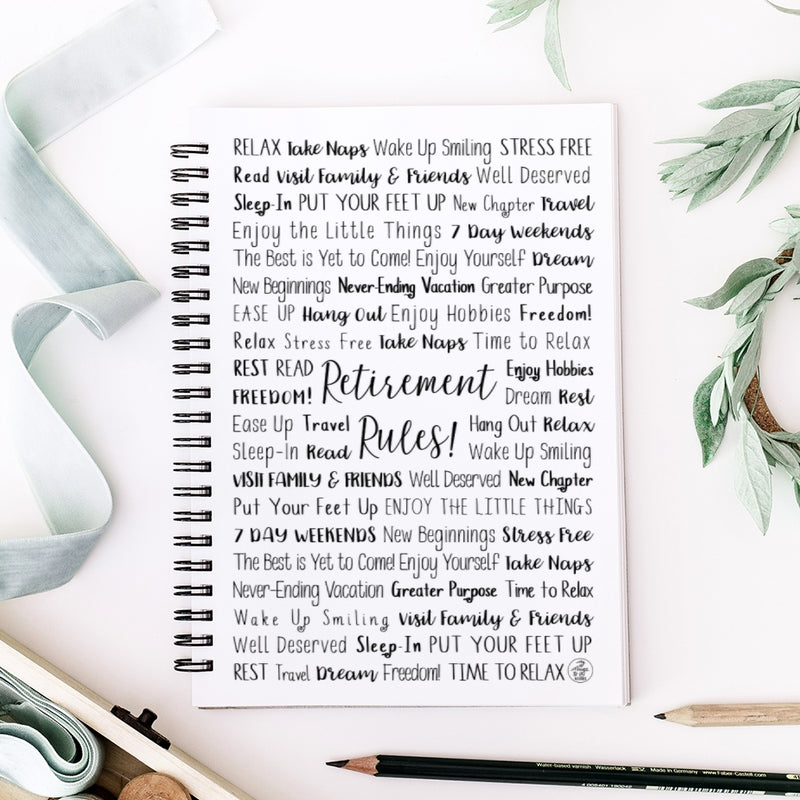 RELAX Take Naps Wake Up Smiling STRESS FREE
Read Visit Family & Friends Well Deserved
Sleep-In PUT YOUR FEET UP New Chapter Travel
Enjoy the Little Things 7 Day Weekends
The Best is Yet to Come! Enjoy Yourself Dream
New Beginnings Never-Ending Vacation Greater Purpose
EASE UP Hang Out Enjoy Hobbies Freedom!
Relax Stress Free Take Naps Time to Relax
REST READ Enjoy Hobbies
FREEDOM! Retirement Dream Rest
Ease Up Travel Hang Out Relax
Sleep-In Read Rules! Wake Up Smiling
VISIT FAMILY & FRIENDS Well Deserved New Chapter
Put Your Feet Up ENJOY THE LITTLE THINGS
7 DAY WEEKENDS New Beginnings Stress Free
The Best is Yet to Come! Enjoy Yourself Take Naps
Never-Ending Vacation Greater Purpose Time to Relax
Wake Up Smiling Visit Family & Friends
Well Deserved Sleep-In PUT YOUR FEET UP
REST Travel Dream Freedom! TIME TO RELAX
Water-based varnish Wasserlack Made in Germany www.Faber-Castell.com